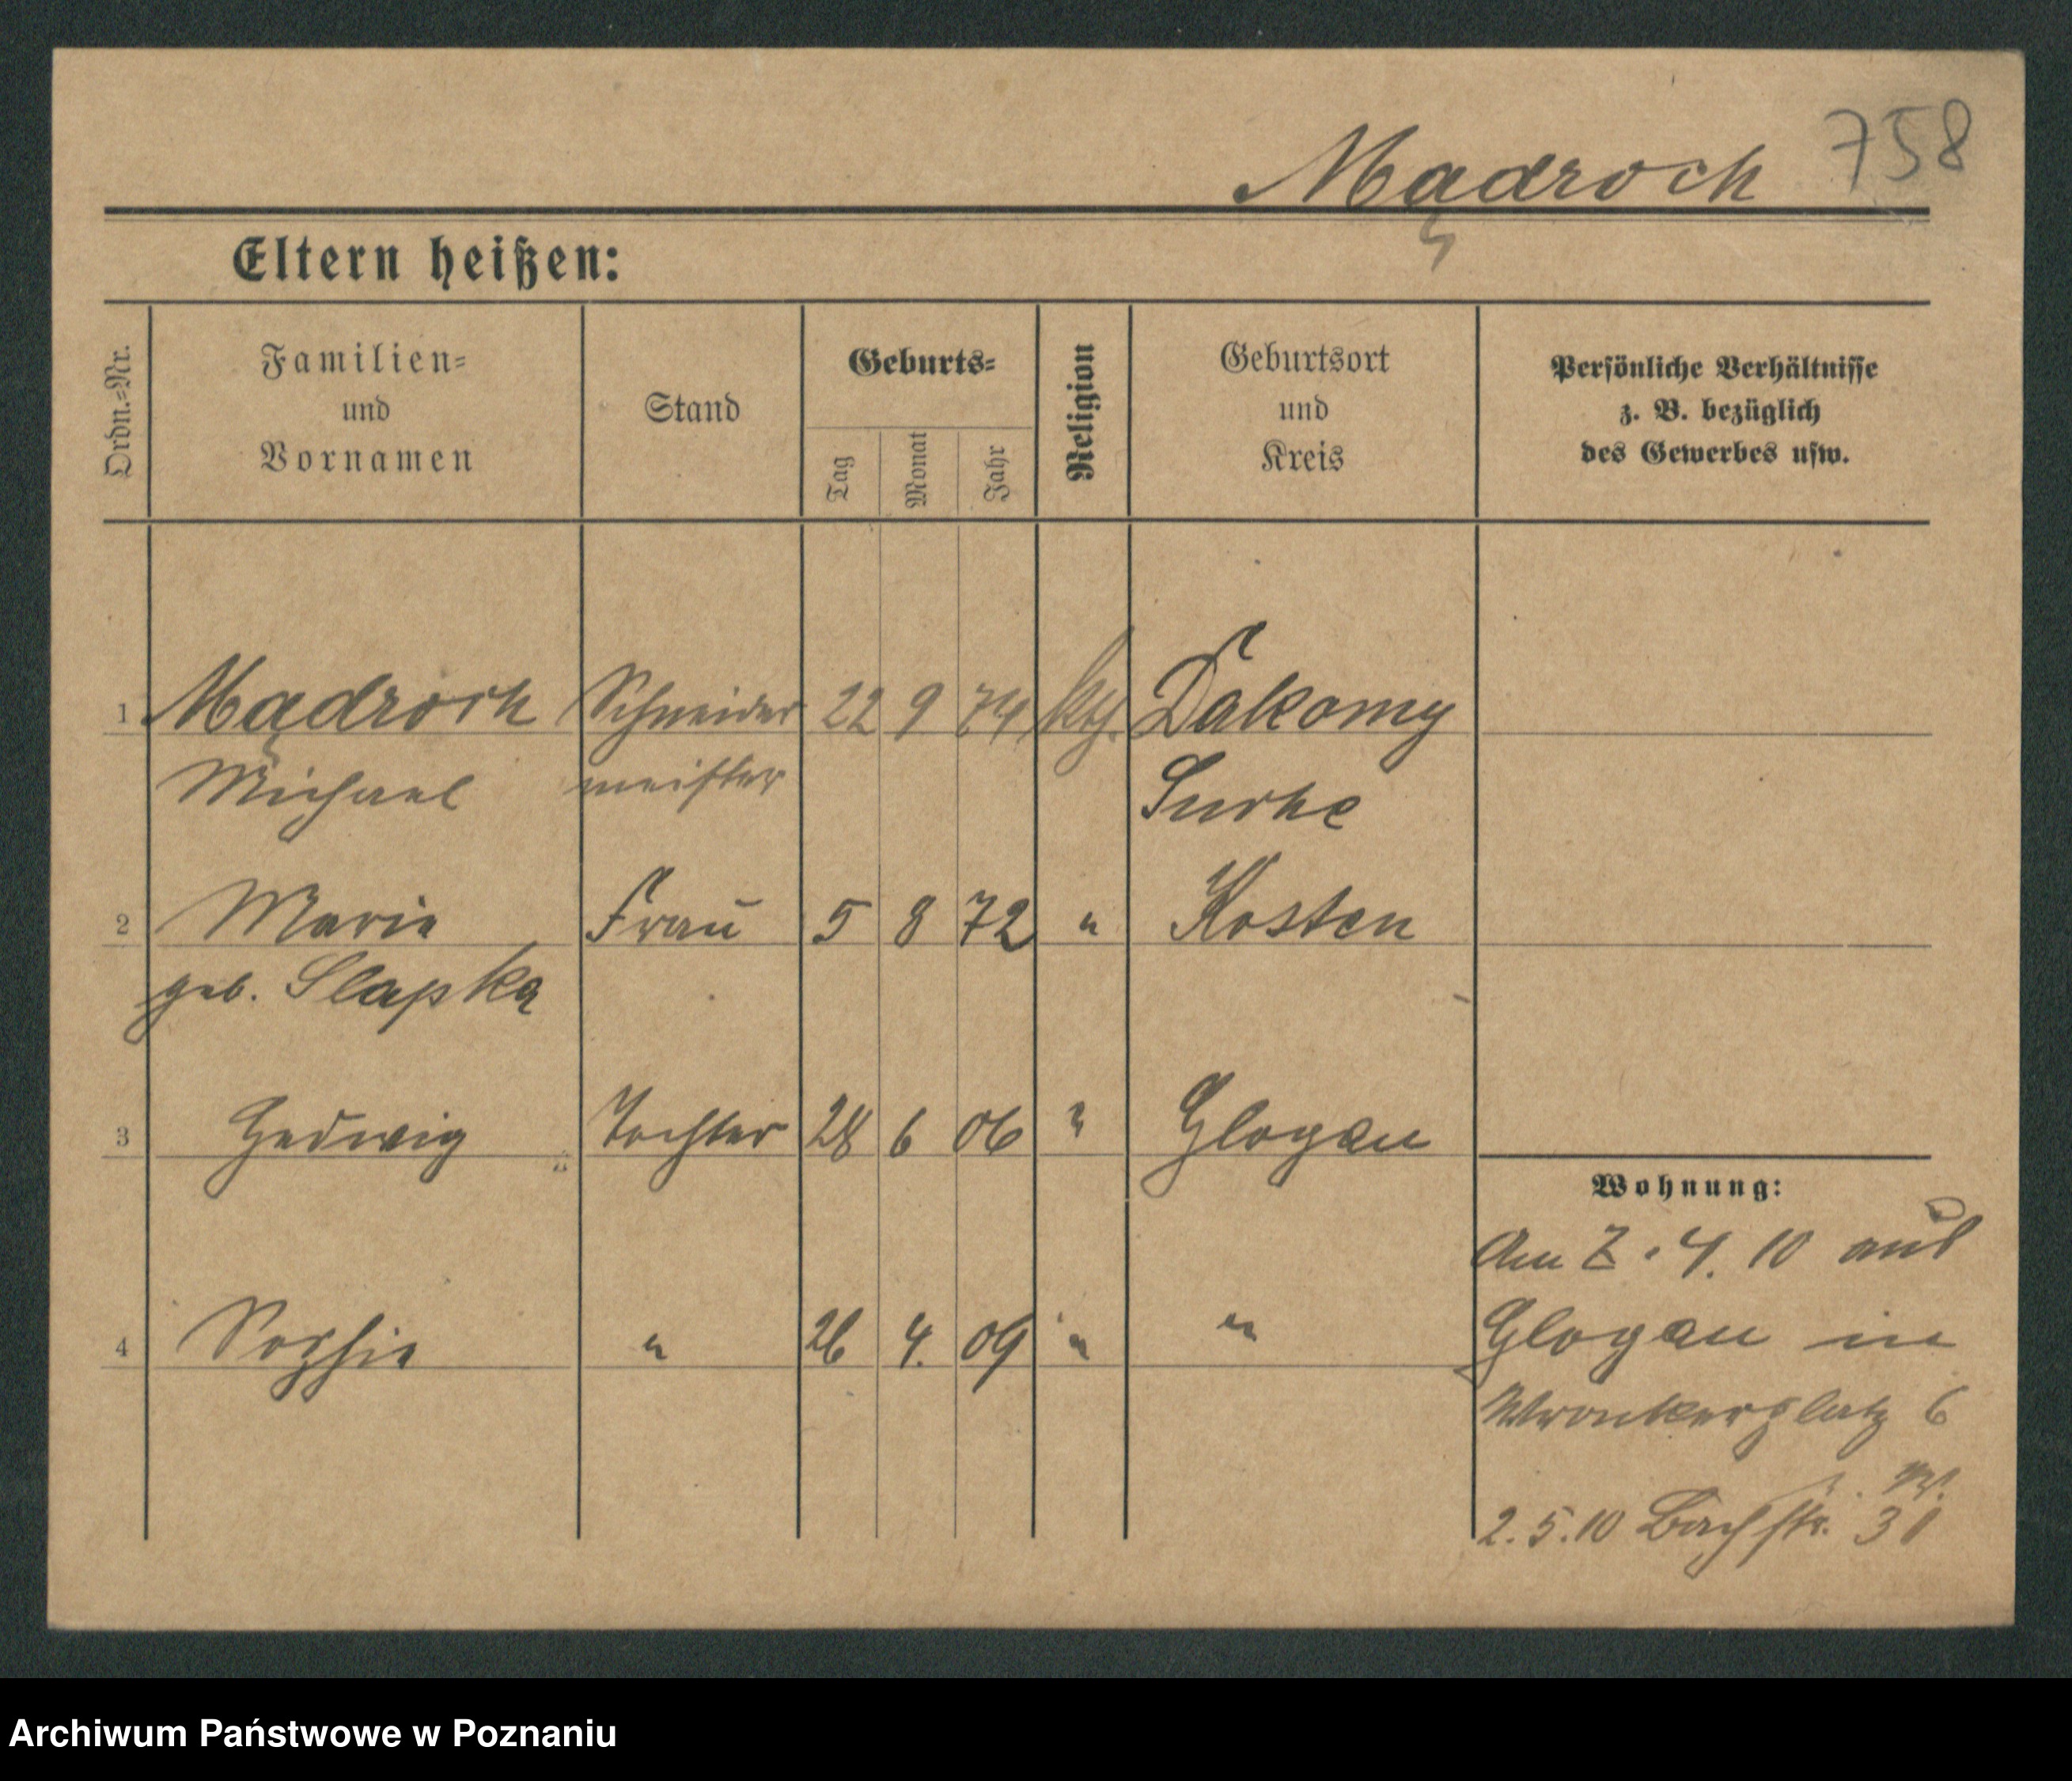 758
Mądroch
Eltern heißen:
Ordn.=Nr.
Familien=
und
Vornamen
Stand
Geburts=
Tag
Monat
Jahr
Religion
Geburtsort
und
Kreis
Persönliche Verhältnisse
z. B. bezüglich
des Gewerbes usw.
1 Mądroch Schneider 22 9 74 kth. Dakomy
Michael meister
2 Marie Frau 5 8 72 " Kosten
geb. Slapka
3 Hedwig Tochter 28 6 06 " Glogau
Wohnung:
Am 2. 4. 10 aus
4 Sophie " 26 4. 09 " "
Glogau in
Wronkerplatz 6
2.5.10 Bachstr. 31
Archiwum Państwowe w Poznaniu